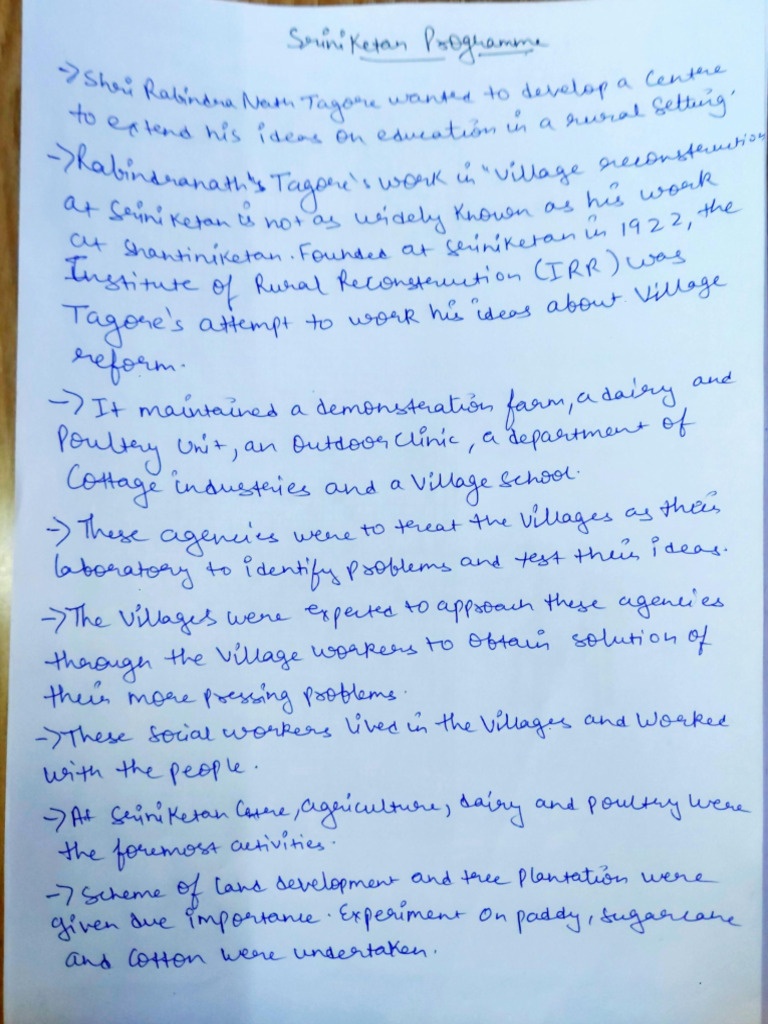 Sriniketan Programme
→ Shri Rabindra Nath Tagore wanted to develop a Centre
to extend his ideas on education in a rural setting.
→ Rabindranath's Tagore's work in "Village reconstruction
at Sriniketan is not as widely known as his work
at Shantiniketan. Founded at Sriniketan in 1922, the
Institute of Rural Reconstruction (IRR) was
Tagore's attempt to work his ideas about village
reform.
→ It maintained a demonstration farm, a dairy and
Poultry Unit, an Outdoor Clinic, a department of
Cottage industries and a Village School.
→ These agencies were to treat the villages as their
laboratory to identify problems and test their ideas.
→ The Villages were expected to approach these agencies
through the Village workers to obtain solution of
their more pressing problems.
→ These social workers lived in the villages and worked
with the people.
→ At Sriniketan Centre, agriculture, dairy and poultry were
the foremost activities.
→ Scheme of land development and tree plantation were
given due importance. Experiment on paddy, sugarcane
and cotton were undertaken.